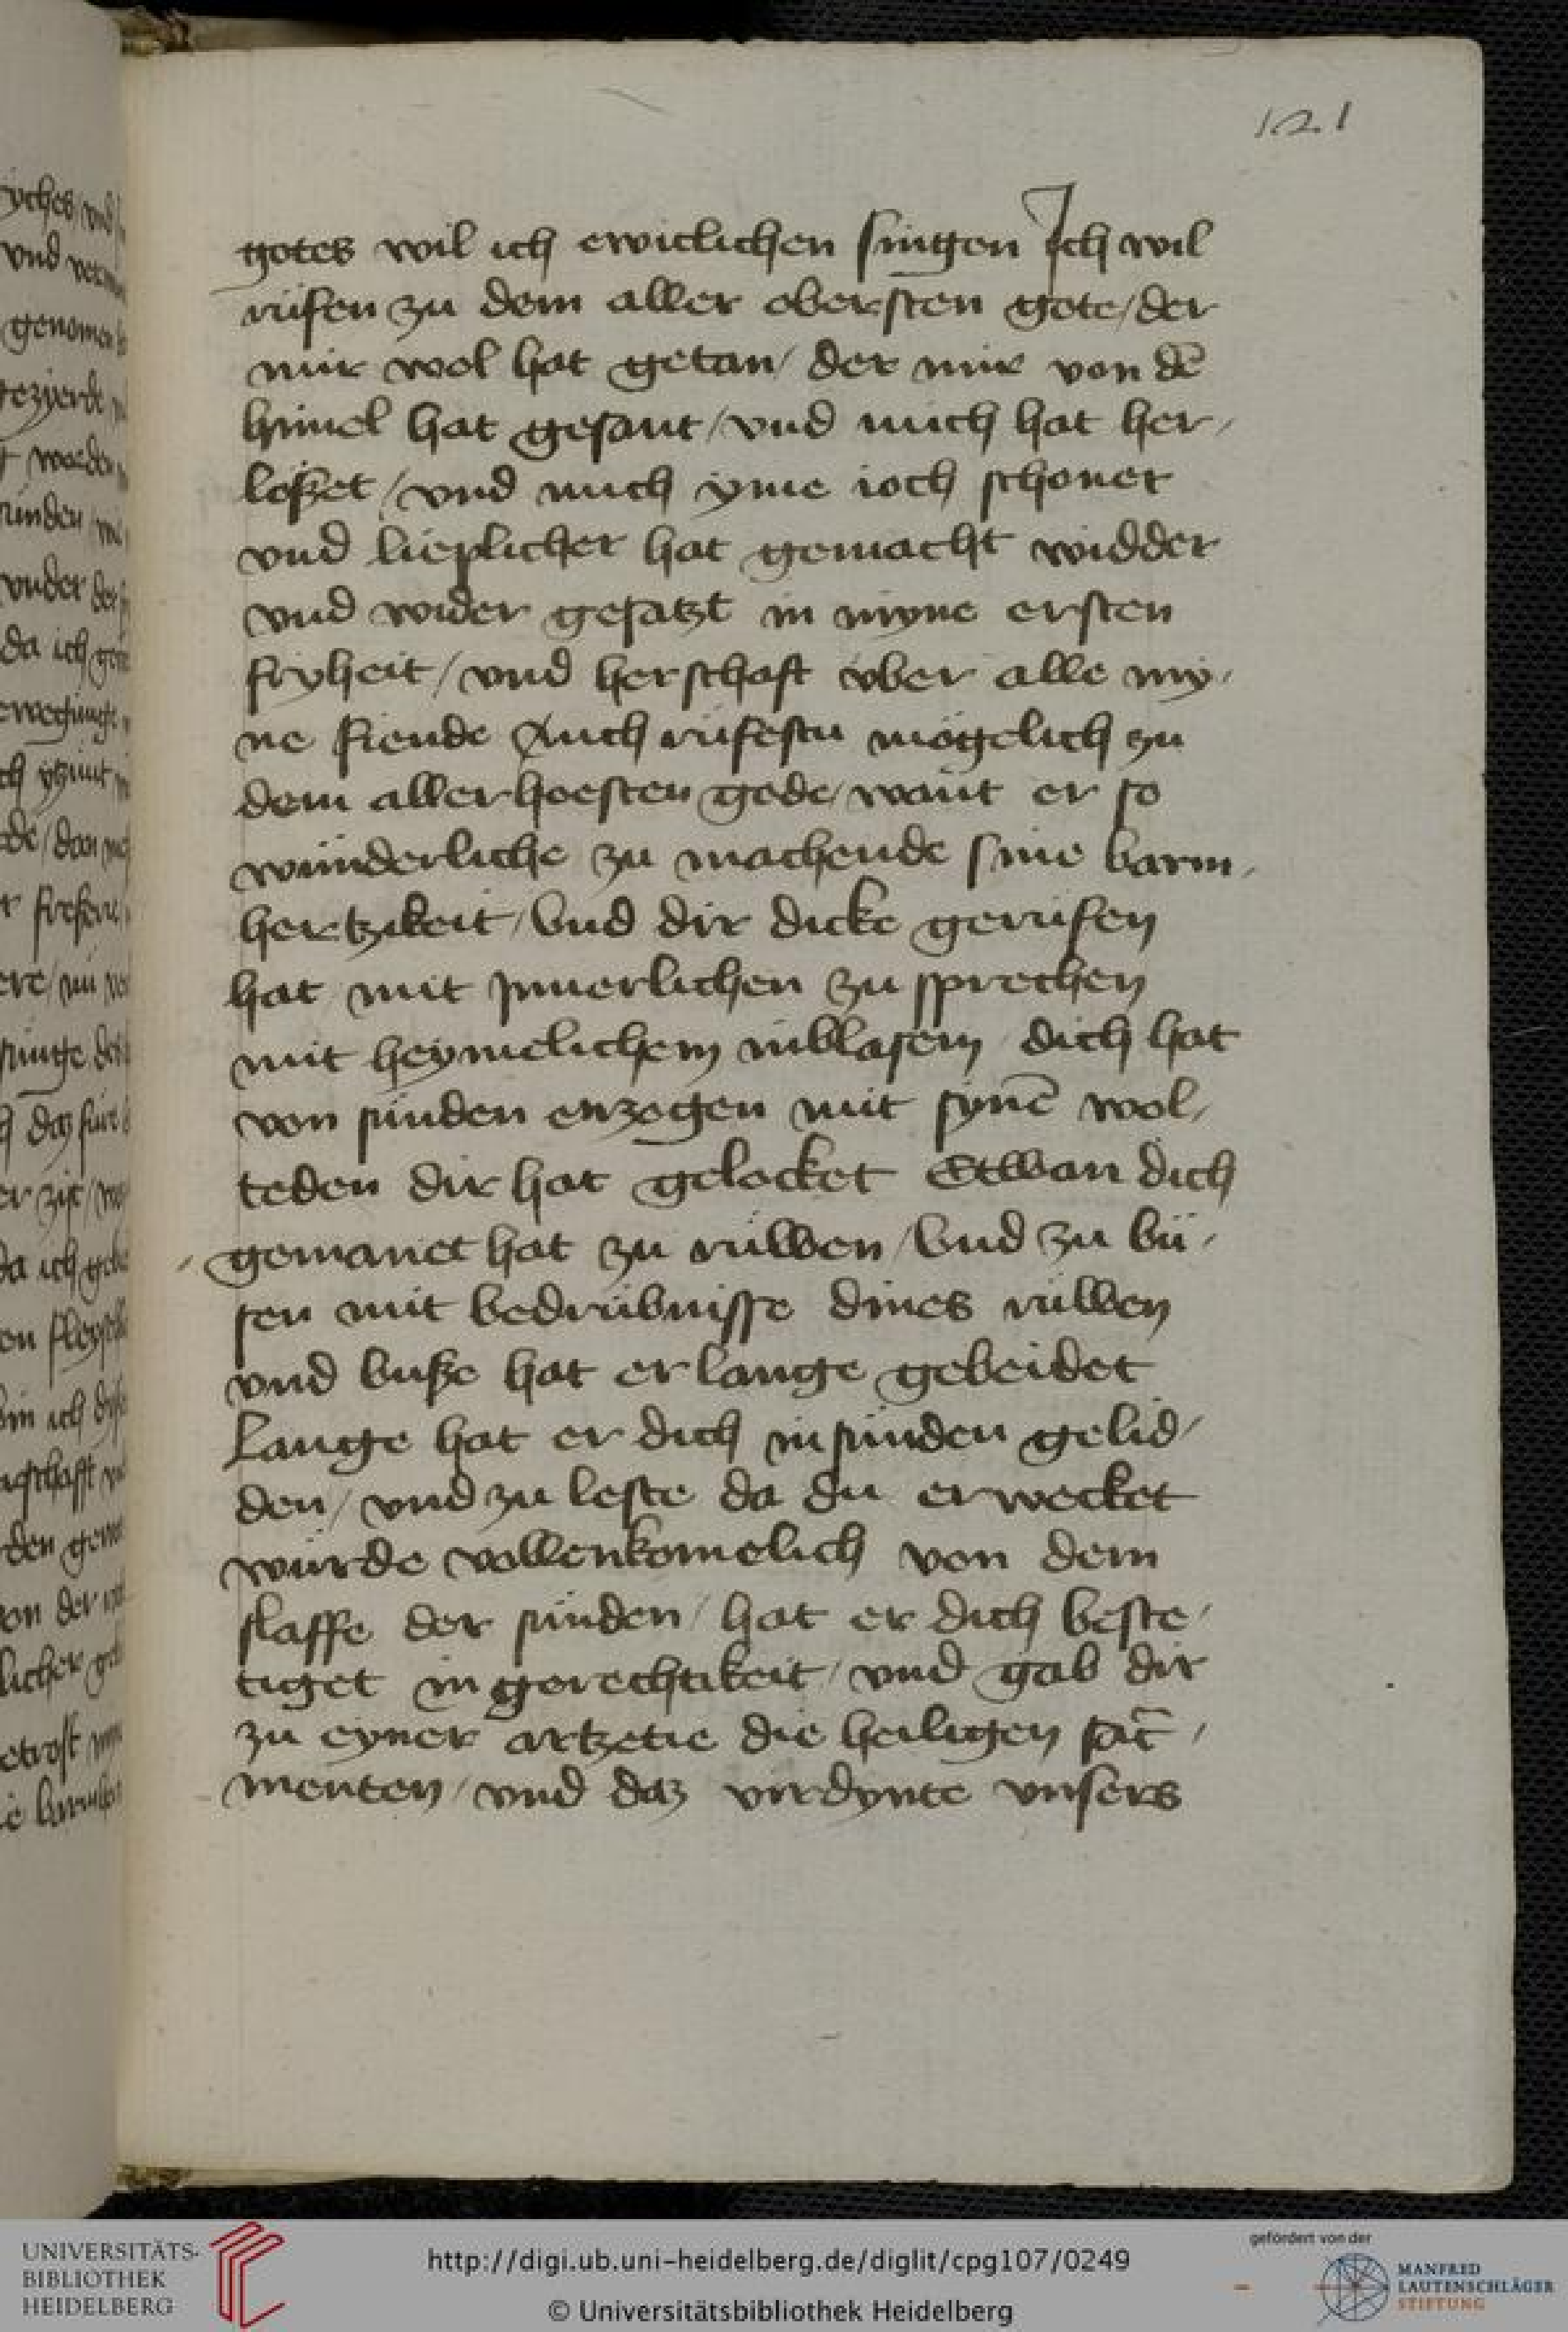 121
gotes wil ich ewiclichen singen Ich wil
rüfen zu dem aller obersten gote / der
mir wol hat getan / der mir von dē
himel hat gesant / vnd mich hat her /
loßet / vnd mich yme ioch schoner
vnd lieplicher hat gemacht widder
vnd wider gesatzt in myne ersten
fryheit / vnd herschaft vber alle my /
ne fiende Auch rüfestu mögelich zu
dem allerhoesten gode / want er so
wunderliche zu machende sine barm /
hertzikeit / vnd dir dicke gerufen
hat mit Innerlichen zu sprechen
mit heymelichem inblasem dich hat
von sunden enzogen mit synē wol /
teden dir hat gelocket Etwan dich
gemanet hat zu rüwen / vnd zu bü /
sen mit bedrübnisse dines rüwen
vnd buße hat er lange gebeidet
Lange hat er dich in sunden gelid /
den / vnd zu leste da du erwecket
wurde vollenkomelich von dem
slaffe der sunden / hat er dich beste /
tiget in gerechtikeit / vnd gab dir
zu eyner artzetie die heiligen sac̄ /
menten / vnd daz virdynte vnsers
UNIVERSITÄTS-
BIBLIOTHEK
HEIDELBERG
http://digi.ub.uni-heidelberg.de/diglit/cpg107/0249
© Universitätsbibliothek Heidelberg
gefördert von der
MANFRED
LAUTENSCHLÄGER
STIFTUNG